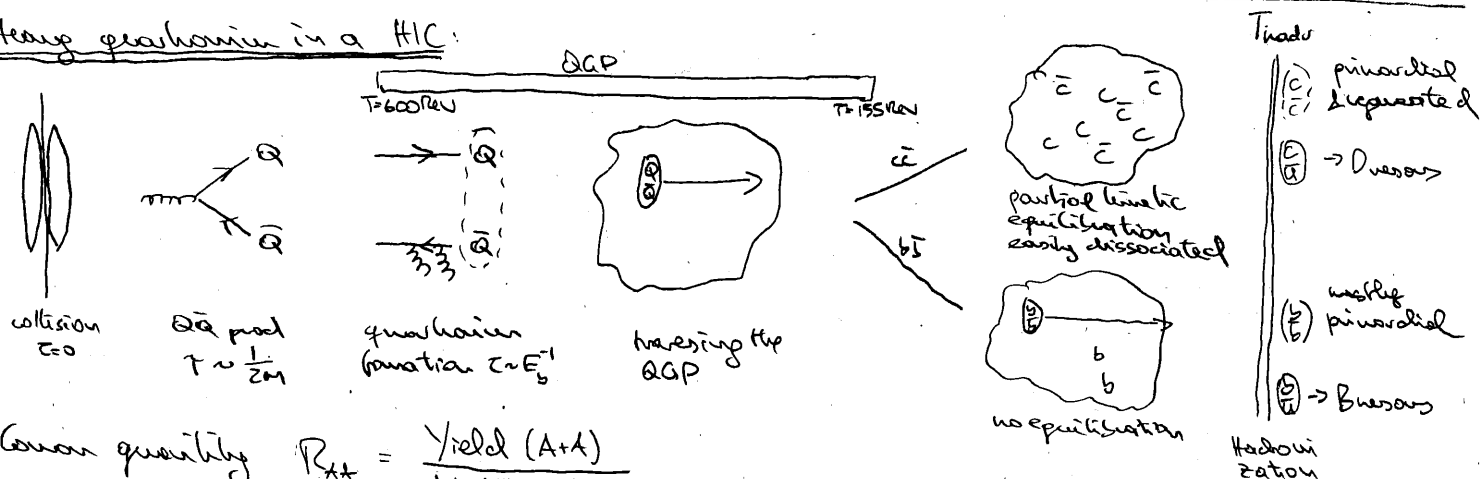 Heavy quarkonium in a HIC:
QGP
T=600MeV
T=155MeV
Q
Q̄
Q̄
Q̄
Q
Q
collision
τ=0
QQ̄ prod
τ ~ 1/2m
quarkonium
formation τ~E_b^-1
traversing the
QGP
cc̄
bb̄
c̄ c c̄
c̄
c c
c c̄
partial kinetic
equilibration
easily dissociated
b
b̄
b
b
no equilibration
Thadr
c
c̄
primordial
&
c
ū
→ D mesons
b
b̄
mostly
primordial
b
ū
→ B mesons
Hadroni
zation
quantity R_AA = Yield (A+A)